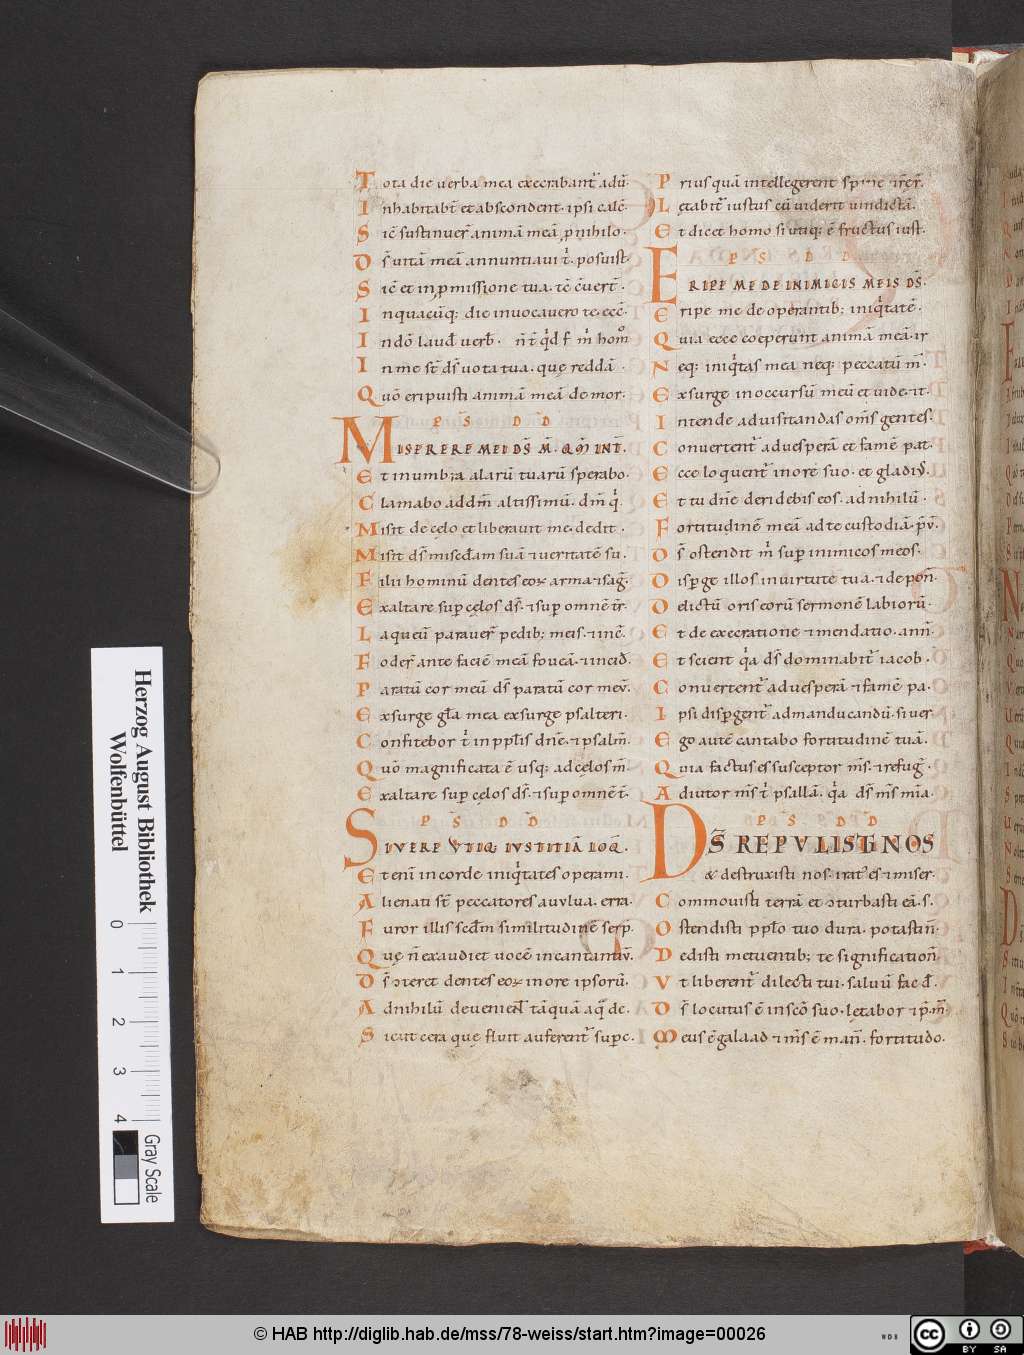 Tota die verba mea execrabant᷑ adū
Inhabitabt̄ et abscondent. ipsi calc̄.
Sic̄ sustinuer̄ animā meā p̱ nihilo.
Ds̄ vitā meā annuntiavi t̄. posuist̄
Sic̄ et in promissione tua. tc̄ cvert̄.
In quacūq; die invocavero te. ecc̄
In dō laud̄ verb̄. n̄ t̄ qd f m̄ hom̊
In me st̄ ds̄ vota tua. quę reddā.
Qūo eripuisti animā meā de mor.
PS̄ DD̄
MISERERE MEI DS̄ M̄. QM̄ INT̄.
Et in umbra alarū tuarū sperabo.
Clamabo ad dm̄ altissimū. dm̄ q̄.
Misit de cęlo et liberavit me. dedit.
Misit ds̄ misc̄dam suā ⁊ veritatē su.
Filii hominū dentes eoꝝ arma ⁊ saḡ.
Exaltare sup̱ cęlos ds̄. ⁊ sup̱ omnē tr̄.
Laqueū paraver̄ pedib; meis. ⁊ inc̄.
Foder̄ ante faciē meā foveā. ⁊ incid̄.
Paratū cor meū ds̄ paratū cor meū.
Exsurge gl̄a mea exsurge psalteri.
Confitebor t̄ in pp̄lis dn̄e. ⁊ psalm̄.
Qūo magnificata ē usq; ad cęlos m̄.
Exaltare sup̱ cęlos ds̄. ⁊ sup̱ omnē t̄.
PS̄ DD̄
SI VERE VTIQ; IVSTITIĀ LOQ̄.
Etenī in corde iniqtates operami.
Alienati st̄ peccatores a vvlva. erra.
Furor illis scd̄m similitudinē serp̄.
Quę n̄ exaudiet vocē incantantiū.
Ds̄ ↄteret dentes eoꝝ in ore ipsorū.
Ad nihilū devenient tāquā aq̄ dc.
Sicut cera quę fluit auferent᷑ sup̱c.
Priusquā intellegerent spine
Lętabit᷑ iustus cū viderit vindictā.
Et dicet homo si utiq; ē fructus iust.
PS̄ DD̄
ERIPE ME DE INIMICIS MEIS DS̄.
Eripe me de operantib; iniqtatē.
Quia ecce coeperunt animā meā. ir
Neq; iniqtas mea neq; peccatū m̄.
Exsurge in occursū meū et vide. ⁊ t.
Intende ad visitandas om̄s gentes.
Convertent᷑ ad vesperā et famē pat.
Ecce loquent᷑ in ore suo. et gladiū.
Et tu dn̄e deridebis eos. ad nihilū.
Fortitudinē meā ad te custodiā. p̄v.
Ds̄ ostendit m̄ sup̱ inimicos meos.
Disp̱ge illos in virtute tua. ⁊ depon̄.
Delictū oris eorū sermonē labiorū.
Et de execratione ⁊ mendatio. ann̄.
Et scient qa ds̄ dominabit᷑ iacob.
Convertent᷑ ad vesperā ⁊ famē pa.
Ipsi disp̱gent᷑ ad manducandū. si ver
Ego autē cantabo fortitudinē tuā.
Quia factus es susceptor ms̄. ⁊ refuḡ.
Adiutor ms̄ t̄ psallā. qa ds̄ ms̄ mīa.
PS̄ DD̄
DS̄ REPVLISTI NOS
& destruxisti nos. irat᷒ es ⁊ miser.
Commovisti terrā et ↄturbasti eā. s.
Ostendisti pp̄lo tuo dura. potastin̄.
Dedisti metuentib; te signification̄.
Vt liberent᷑ dilecti tui. salvū fac d̄.
Ds̄ locutus ē in sc̄o suo. lętabor ⁊ p̄m̄
Meus ē galaad ⁊ ms̄ ē man̄. fortitudo.
Herzog August Bibliothek
Wolfenbüttel
0 1 2 3 4
Gray Scale
© HAB http://diglib.hab.de/mss/78-weiss/start.htm?image=00026
WDB
cc
BY SA